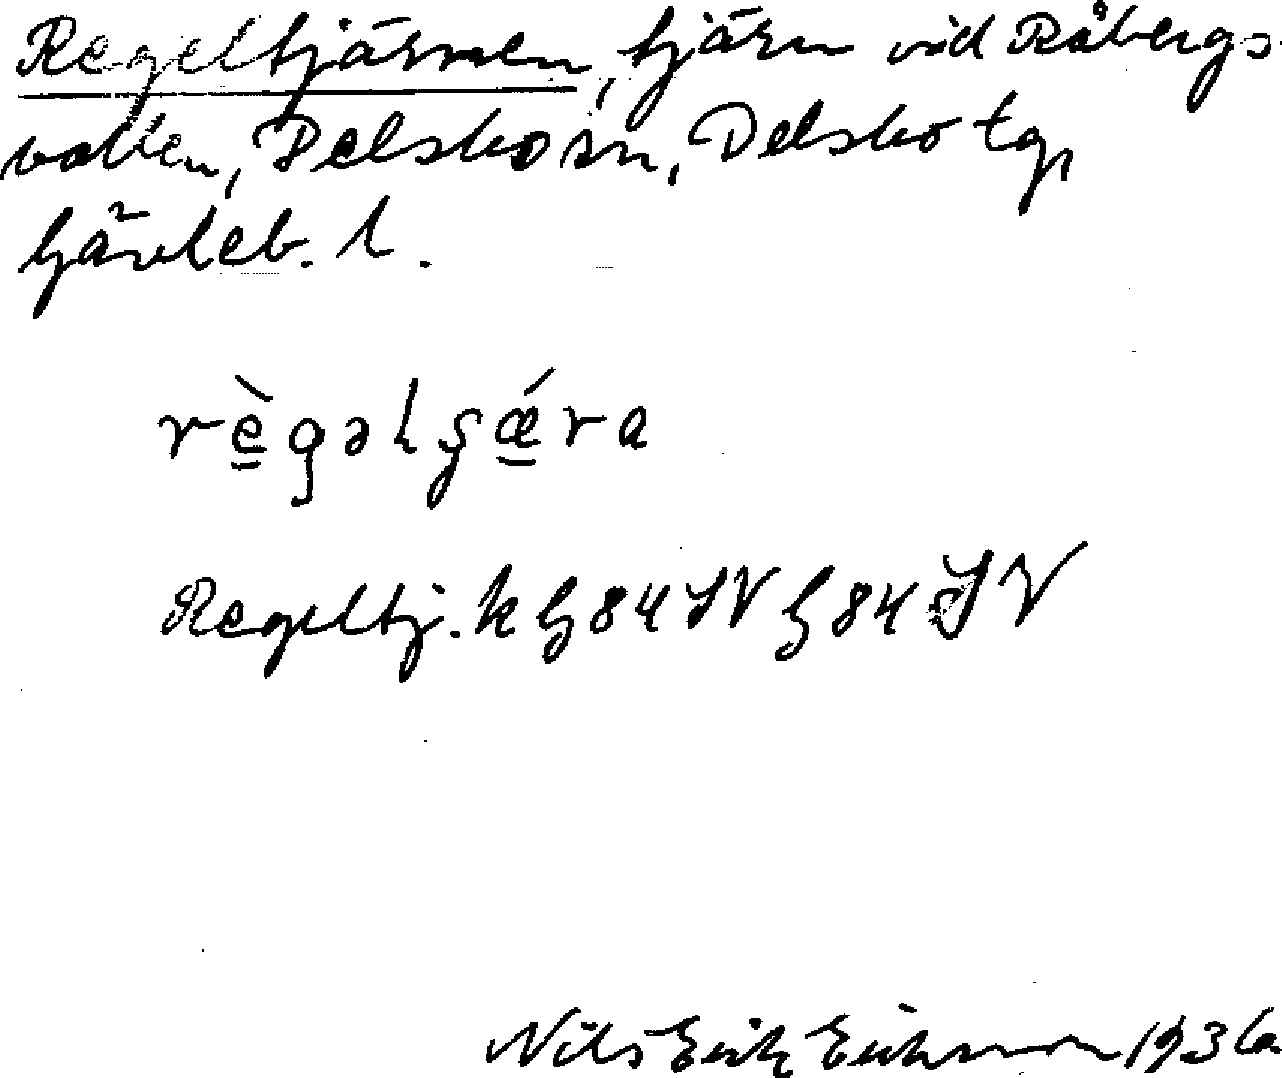 Regeltjärnen, tjärn vid Råbergs-
vallen, Delsbo sn, Delsbo tg,
Gävleb. l.
règəlʂǽra
Regeltj. k G 84 SV G 84 SV
Nils Erik Eriksson 1936